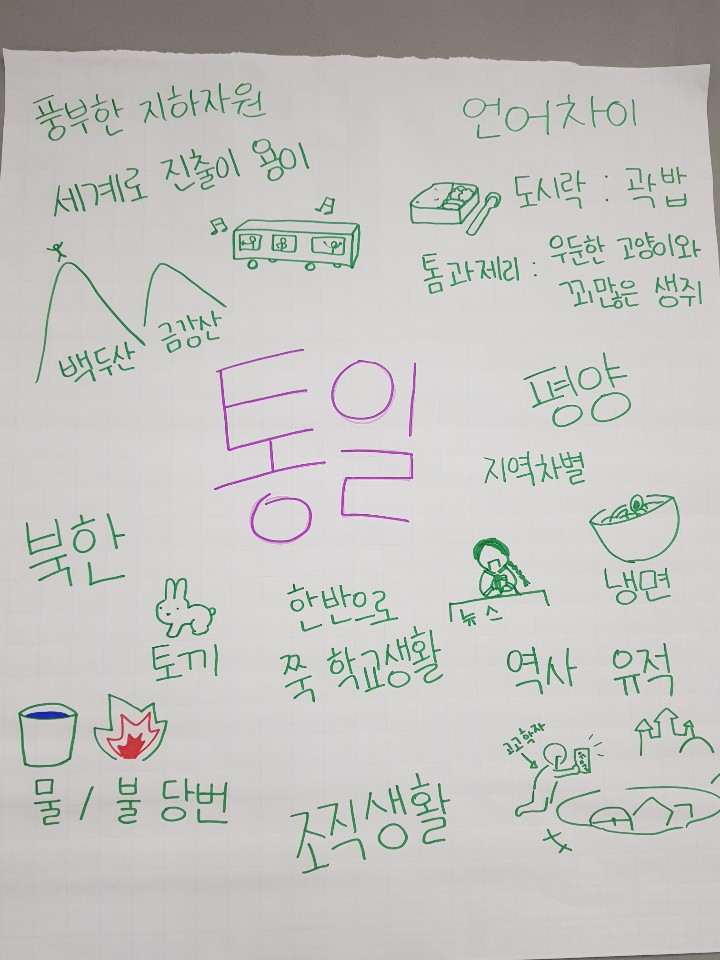 풍부한 지하자원
세계로 진출이 용이
백두산
금강산
언어차이
도시락 : 곽밥
톰과제리 : 우둔한 고양이와
꾀많은 생쥐
통일
평양
지역차별
냉면
북한
토끼
한반으로
쭉 학교생활
뉴스
역사 유적
고고학자
물 / 불 당번
조직생활